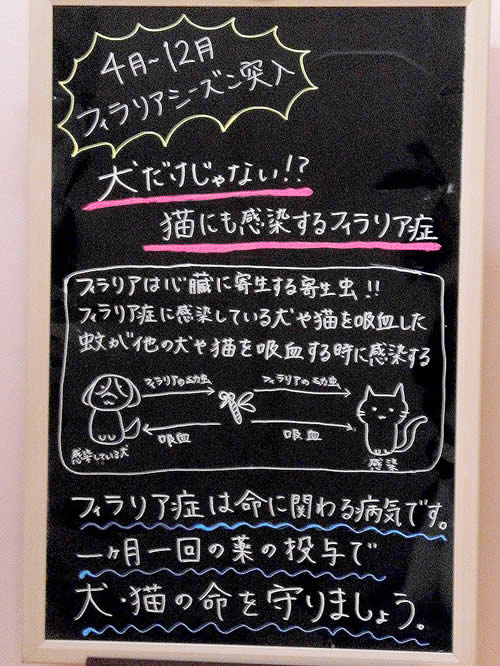 4月~12月
フィラリアシーズン突入
犬だけじゃない!?
猫にも感染するフィラリア症
フィラリアは心臓に寄生する寄生虫!!
フィラリア症に感染している犬や猫を吸血した
蚊が他の犬や猫を吸血する時に感染する
フィラリアの幼虫 フィラリアの幼虫
吸血 吸血
感染している犬 感染
フィラリア症は命に関わる病気です。
一ヶ月一回の薬の投与で
犬・猫の命を守りましょう。